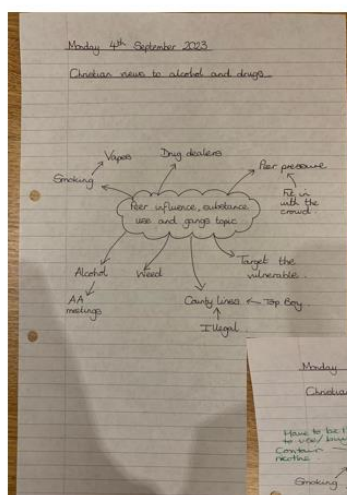 Monday 4th September 2023
Christian news to alcohol and drugs
Vapes
Drug dealers
Peer pressure
Smoking
Fit in
with the
crowd
Peer influence, substance
use and gangs topic
Target the
vulnerable.
Alcohol
Weed
AA
meetings
County lines
Top Boy.
Illegal
Monday
Christian
Have to be
to use/buy
Contain
nicotine
Smoking